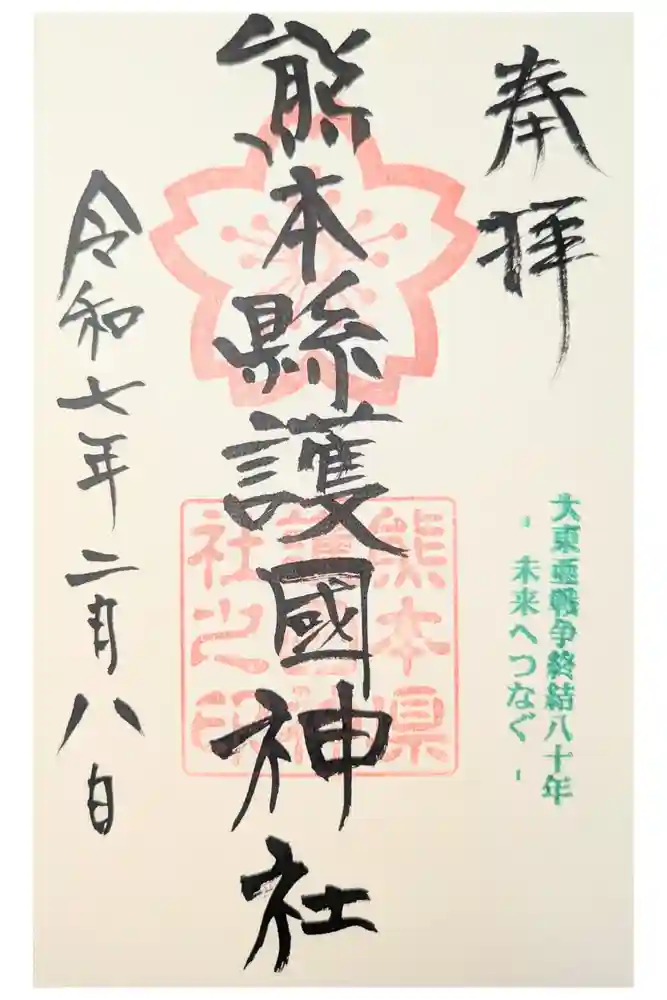 奉拝
大東亜戦争終結八十年
- 未来へつなぐ -
熊本縣護國神社
熊本県
護國神
社之印
令和七年二月八日